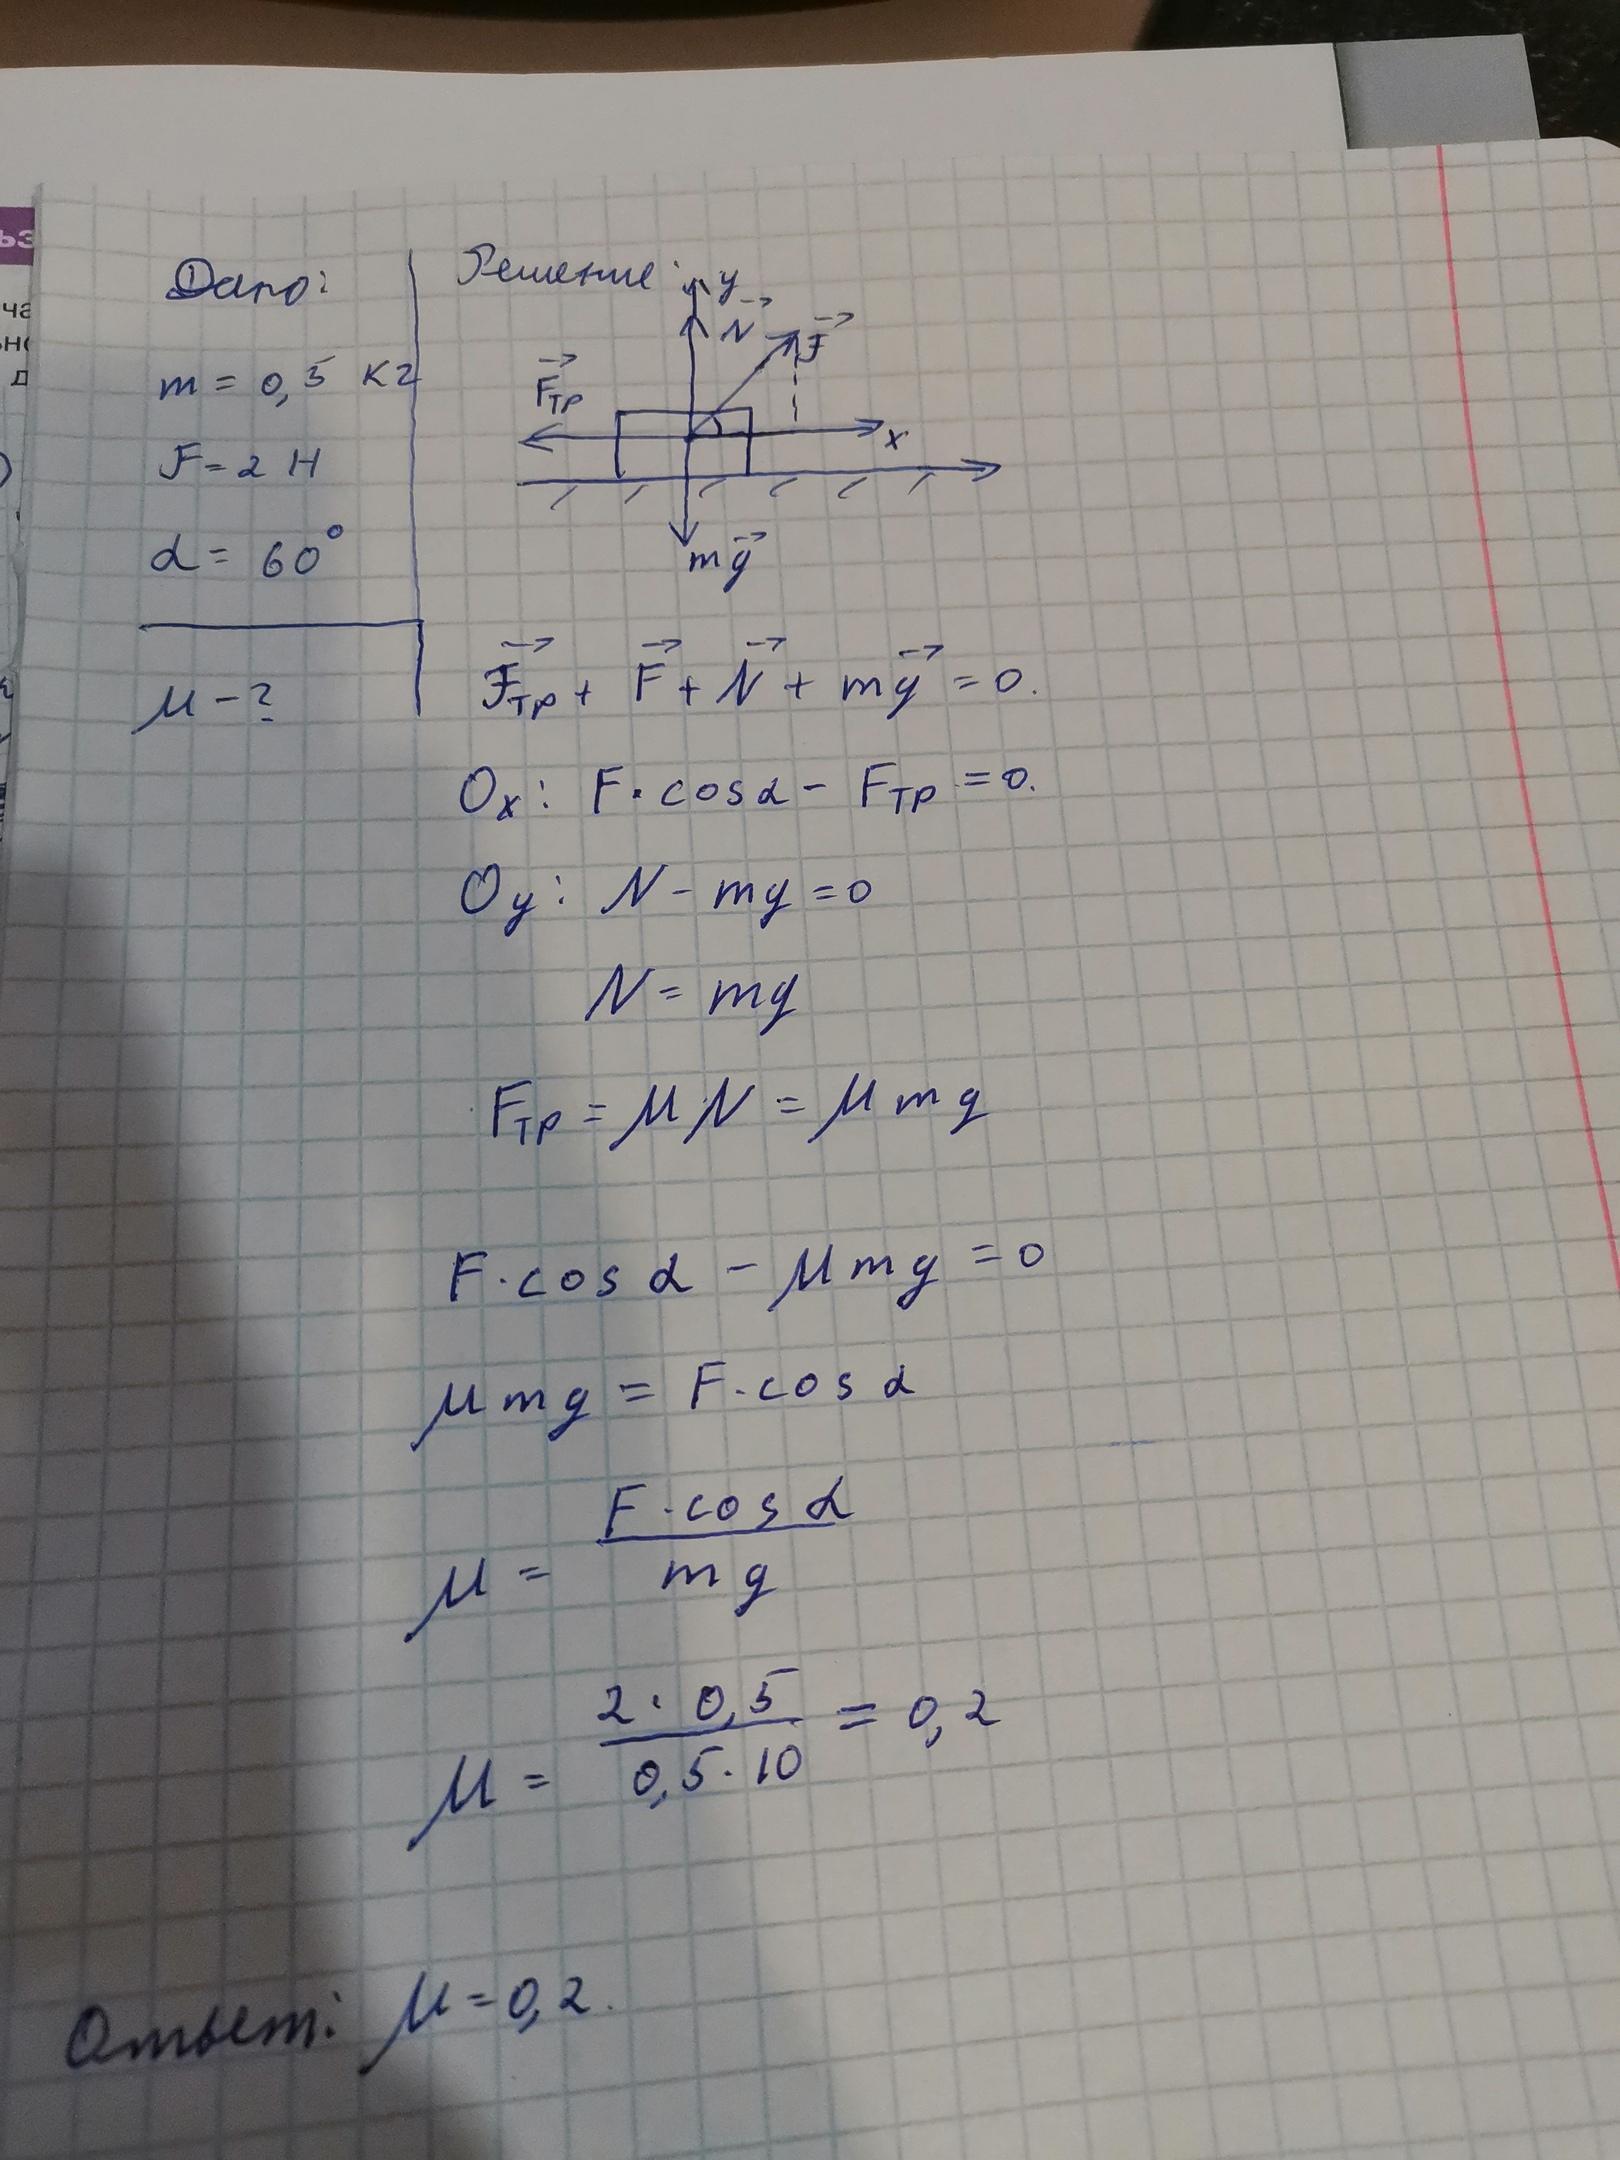 ьз
ча
ьно
д
Дано:
m = 0,5 кг
F = 2 Н
α = 60°
μ - ?
Решение:
y
N
F
Fтр
x
mg
Fтр + F + N + mg = 0.
Ox: F · cosα - Fтр = 0.
Oy: N - mg = 0
N = mg
Fтр = μN = μmg
F · cos α - μmg = 0
μmg = F · cos α
μ = F · cos α / mg
μ = 2 · 0,5 / 0,5 · 10 = 0,2
Ответ: μ = 0,2.